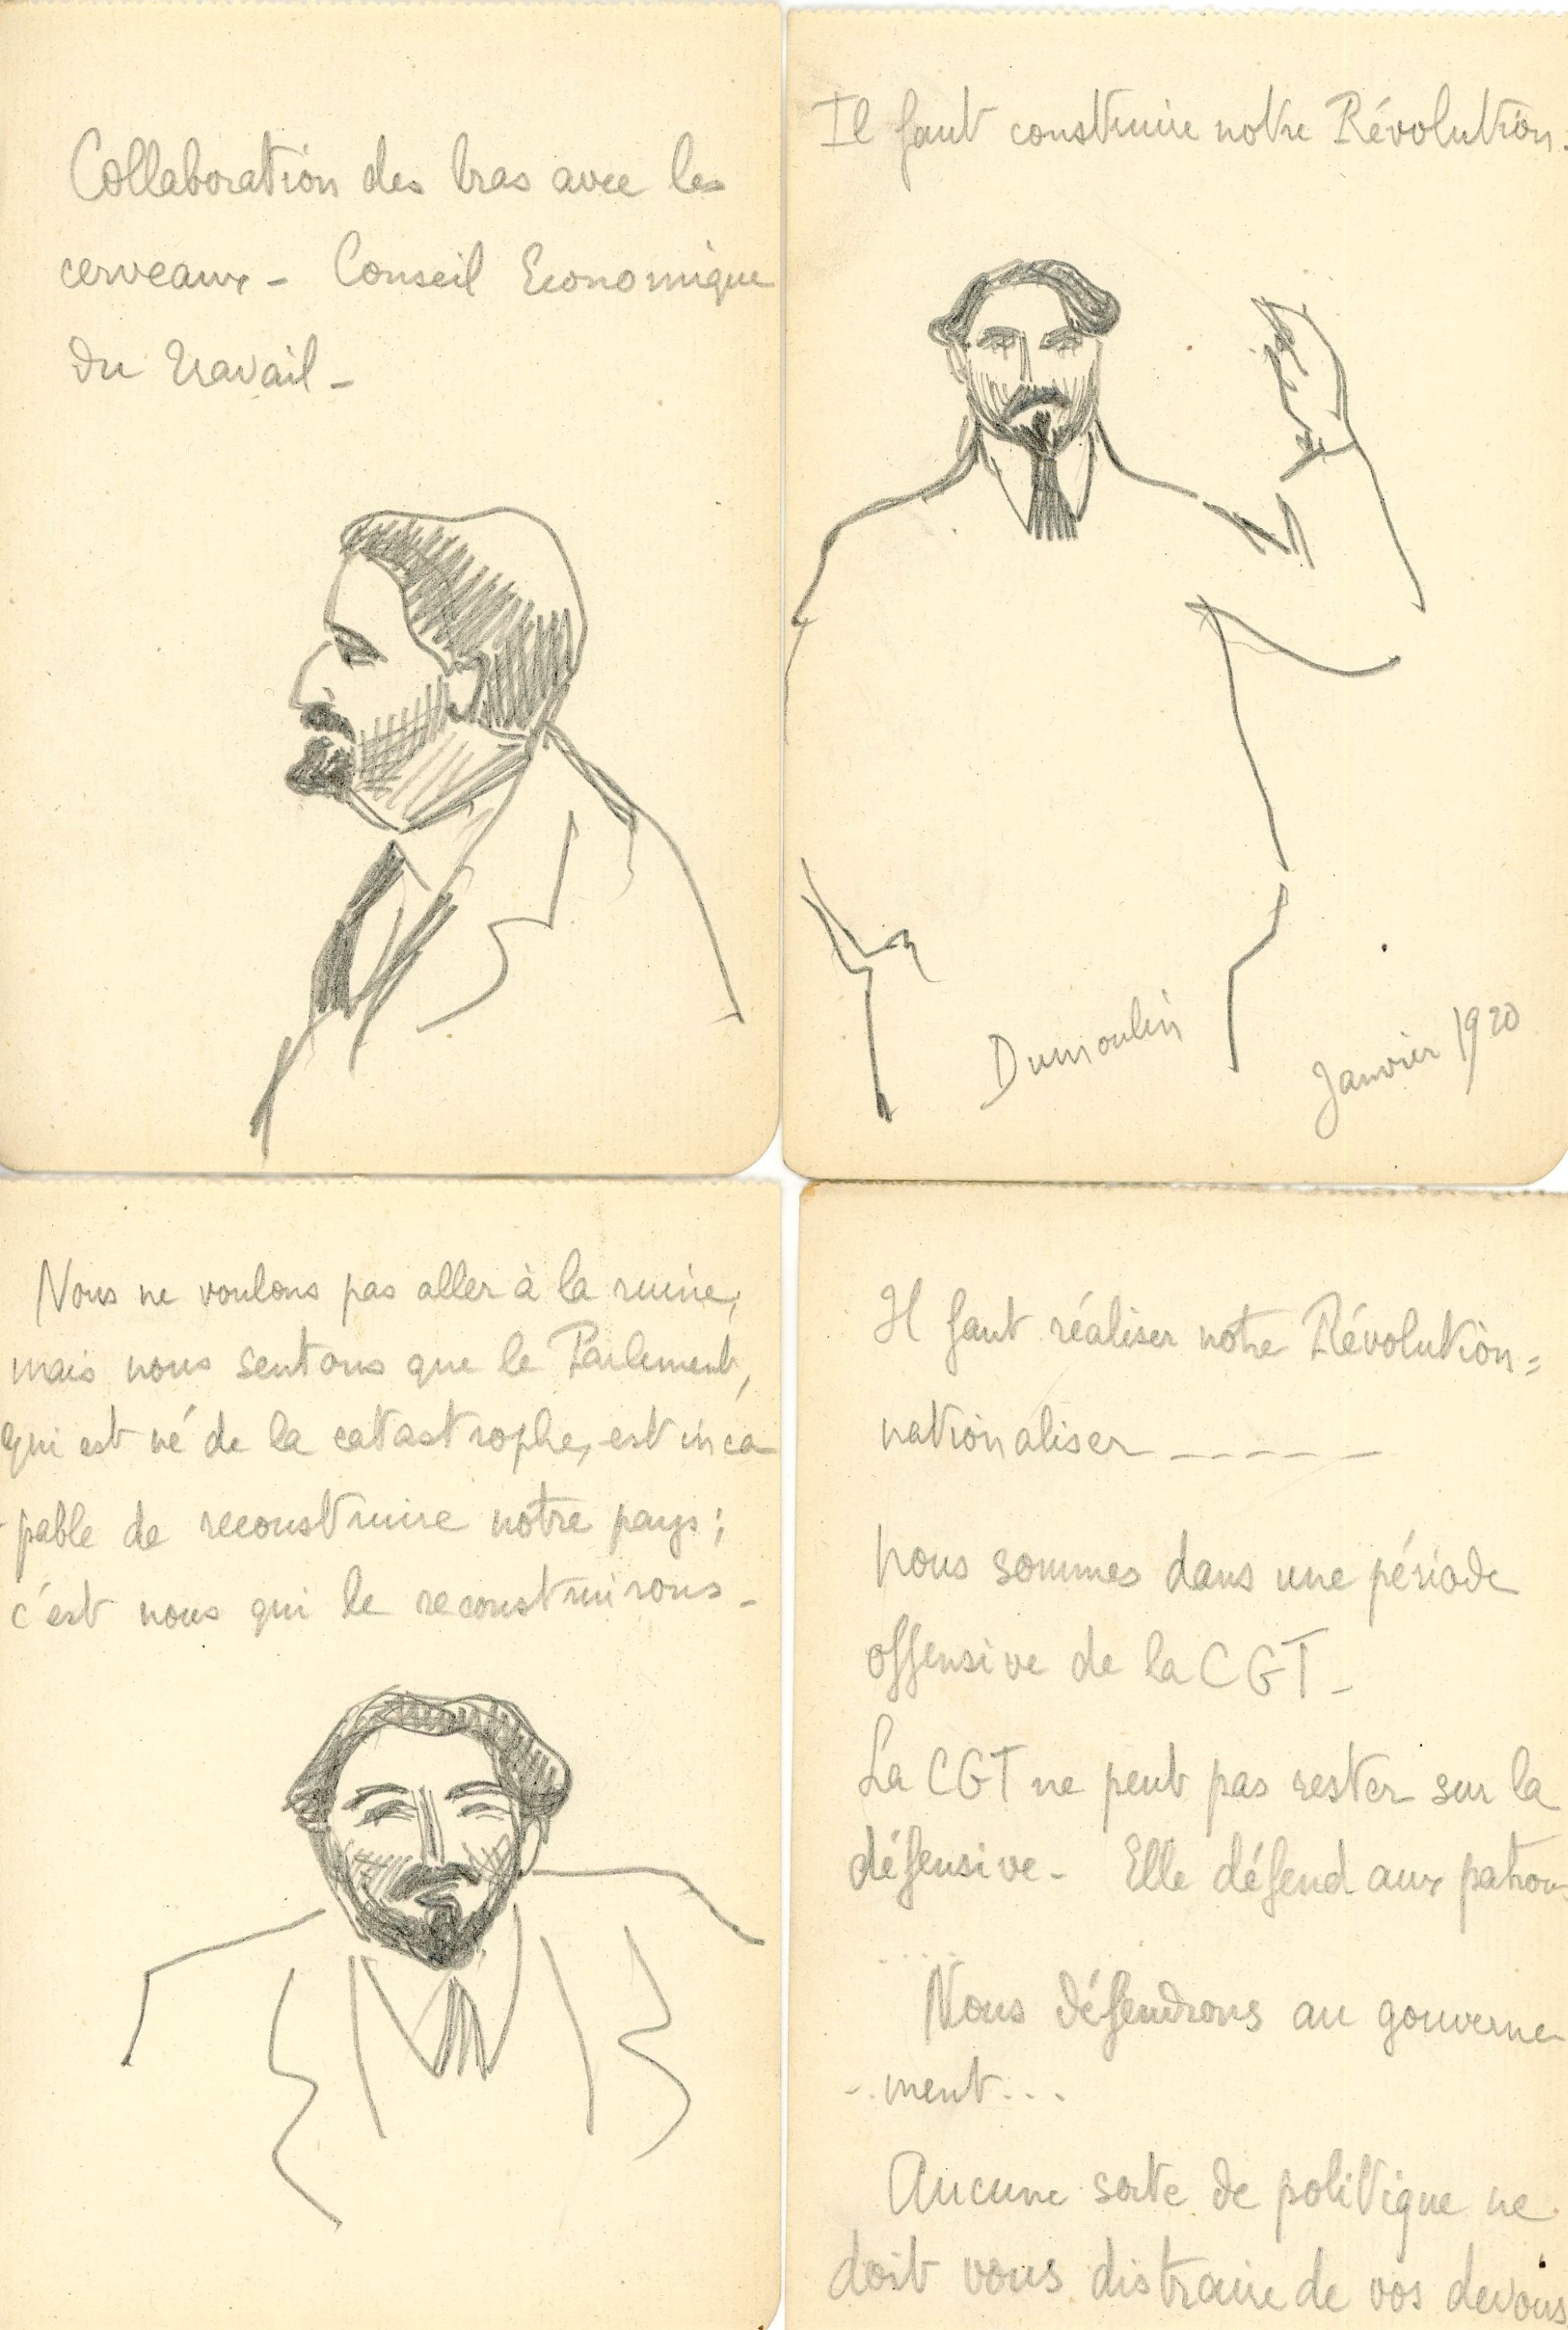 Collaboration des bras avec les
cerveaux - Conseil Economique
du Travail -
Il faut construire notre Révolution.
Dumoulin
Janvier 1920
Nous ne voulons pas aller à la ruine,
mais nous sentons que le Parlement,
qui est né de la catastrophe, est inca
-pable de reconstruire notre pays ;
c'est nous qui le reconstruirons -
Il faut réaliser notre Révolution =
nationaliser - - - - -
nous sommes dans une période
offensive de la CGT -
La CGT ne peut pas rester sur la
défensive - Elle défend aux patrons
.....
Nous défendrons au gouverne
-ment...
Aucune sorte de politique ne
doit vous distraire de vos devoirs